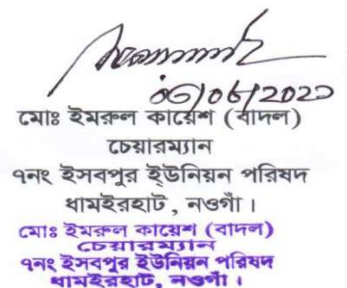 ০৬/০৬/2020
মোঃ ইমরুল কায়েশ (বাদল)
চেয়ারম্যান
৭নং ইসবপুর ইউনিয়ন পরিষদ
ধামইরহাট , নওগাঁ ।
মোঃ ইমরুল কায়েশ (বাদল)
চেয়ারম্যান
৭নং ইসবপুর ইউনিয়ন পরিষদ
ধামইরহাট, নওগাঁ ।